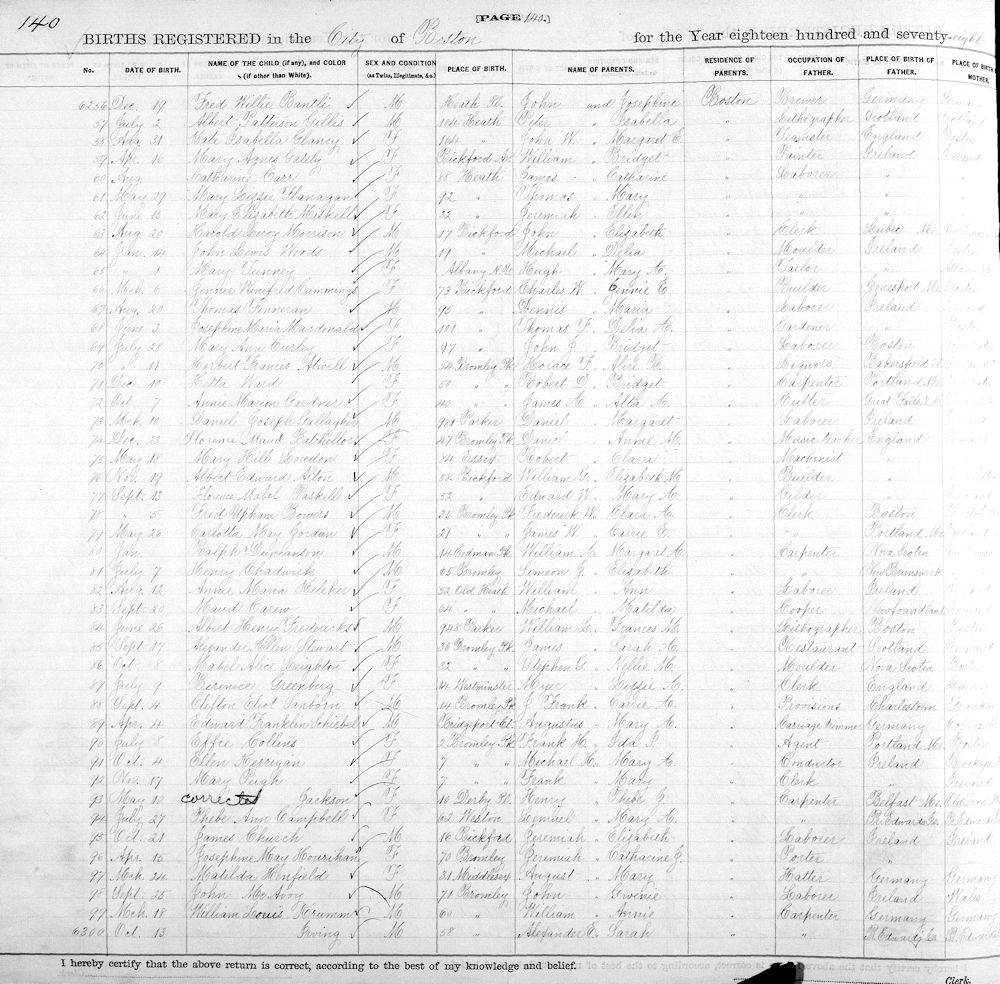 140
[PAGE 140.]
BIRTHS REGISTERED in the City of Boston for the Year eighteen hundred and seventy-eight
No. DATE OF BIRTH. NAME OF THE CHILD (if any), and COLOR (if other than White). SEX AND CONDITION (as Twins, Illegitimate, &c.) PLACE OF BIRTH. NAME OF PARENTS. RESIDENCE OF PARENTS. OCCUPATION OF FATHER. PLACE OF BIRTH OF FATHER. PLACE OF BIRTH MOTHER.
6256 Dec. 19 Fred Willie Bantli M Heath Pl. John and Josephine Boston Brewer Germany
57 July 2 Albert Patterson Gillis M 104 Heath Peter " Isabella " Lithographer Scotland
58 Aug 31 Kate Isabella Clancy F 164 " John W. " Margaret E. " Teamster England Boston
59 Apr. 16 Mary Agnes Gately F Bickford Av. William " Bridget " Painter Ireland
60 Aug. Catharine Carr F 88 Heath James " Catharine " Laborer "
61 May 29 Mary Lizzie Flanagan F 92 " Thomas " Mary " " "
62 June 15 Mary Elizabeth Miskell F 22 " Jeremiah " Ellen " " "
63 Aug 20 Harold Leroy Morrison M 17 Bickford John " Elizabeth " Clerk Lubec Me.
64 Jan. 14 John Lewis Woods M 19 " Michael " Delia " Moulder Ireland
65 " 1 Mary Tunney F Albany N.Y. Hugh " Mary A. " Tailor "
66 Mch. 6 Jennie Winifred Cummings F 73 Bickford Charles W. " Jennie E. " Builder Jonesport Me.
67 Aug. 20 Thomas Finneran M 95 " Dennis " Maria " Laborer Ireland
68 June 3 Josephine Maria Macdonald F 101 " Thomas F. " Delia A. " Gardner "
69 July 28 Mary Ann Curley F 97 " John J. " Bridget " Laborer Boston
70 " 11 Herbert Francis Atwell M 54 Bromley Pk. Horace F. " Alice H. " Liquors Bakersfield
71 Dec. 10 Etta Ward F 50 " " Robert D. " Bridget " Carpenter Portland
72 Oct. 7 Annie Marion Gardner F 40 " " James A. " Alta A. " Cutler Great Falls
73 Mch. 10 Daniel Joseph Gallagher M 981 Parker Daniel " Margaret " Laborer Ireland
74 Dec. 23 Florence Maud Batchellor F 47 Bromley Pk. Daniel " Annie M. " Music teacher England
75 May 18 Mary Hill Loudon F 14 Essex Robert " Clara " Machinist "
76 Nov. 19 Albert Edward Alton M 58 Bickford William G. " Elizabeth M. " Builder "
77 Sept. 13 Florence Mabel Paskell F 52 " Edward W. " Mary A. " Gilder "
78 " 5 Fred Upham Bowers M 35 Bromley Pk. Frederick W. " Clara A. " Clerk Boston
79 May 26 Carlotta May Jordan F 21 " James W. " Carrie E. " " Portland Me.
80 Jan. Ralph Duncanson M 14 Codman Pk. William A. " Margaret A. " Carpenter Nova Scotia
81 July 7 Henry Chadwick M 65 Bromley Simeon J. " Elizabeth " " New Brunswick
82 Aug. 12 Annie Maria Keliher F 52 Old Heath William " Ann " Laborer Ireland
83 Sept. 20 Maud Carew F 64 " " Michael " Matilda " Cooper Newfoundland England
84 June 26 Albert Henry Fredericks M 948 Parker William L. " Frances M. " Lithographer Boston Boston
85 Sept. 17 Alexander Ellen Stewart M 36 Bromley Pk. James " Sarah A. " Restaurant Scotland England
86 Oct. 8 Mabel Alice Leighton F 32 " " Stephen G. " Nellie M. " Moulder Nova Scotia Boston
87 July 9 Berenice Greenberg F 44 Westminster Myer " Lizzie A. " Clerk England
88 Sept. 4 Clifton Eliot Sanborn M 14 Bromley Pk. J. Frank " Carrie A. " Provisions Charlestown Franklin
89 Apr. 4 Edward Franklin Schiebel M Bridgeport Ct. Augustus " Mary A. " Carriage trimmer Germany
90 July 8 Effie Collens F 2 Bromley Pk. Frank H. " Ida F. " Agent Portland Me. Boston
91 Oct. 4 Ellen Kerrigan F 7 " " Michael H. " Mary A. " Conductor Ireland Brooklyn
92 Nov. 17 Mary Pugh F 7 " " Frank " Mary " Clerk " Ireland
93 May 10 corrected Jackson F 10 Derby Pl. Henry " Phebe J. " Carpenter Belfast Me. Old Town
94 July 27 Phebe Ann Campbell F 62 Weston Lemuel " Mary A. " " P. Edwards Isl. P. Edwards
95 Oct. 21 James Church M 16 Bickford Jeremiah " Elizabeth " Laborer Ireland Ireland
96 Apr. 15 Josephine May Hourihan F 70 Bromley Jeremiah " Catharine J. " Porter " "
97 Mch. 24 Matilda Henfield F 31 Middlesex August " Mary " Hatter Germany Germany
98 Sept. 25 John McAvoy M 71 Bromley John " Gwenie " Laborer Ireland Wales
99 Mch. 18 William Louis Krumm M 60 " William " Annie " Carpenter Germany Germany
6300 Oct. 13 Irving M 58 " Alexander E. " Sarah " " P. Edwards Isl. P. Edwards
I hereby certify that the above return is correct, according to the best of my knowledge and belief.
Clerk.